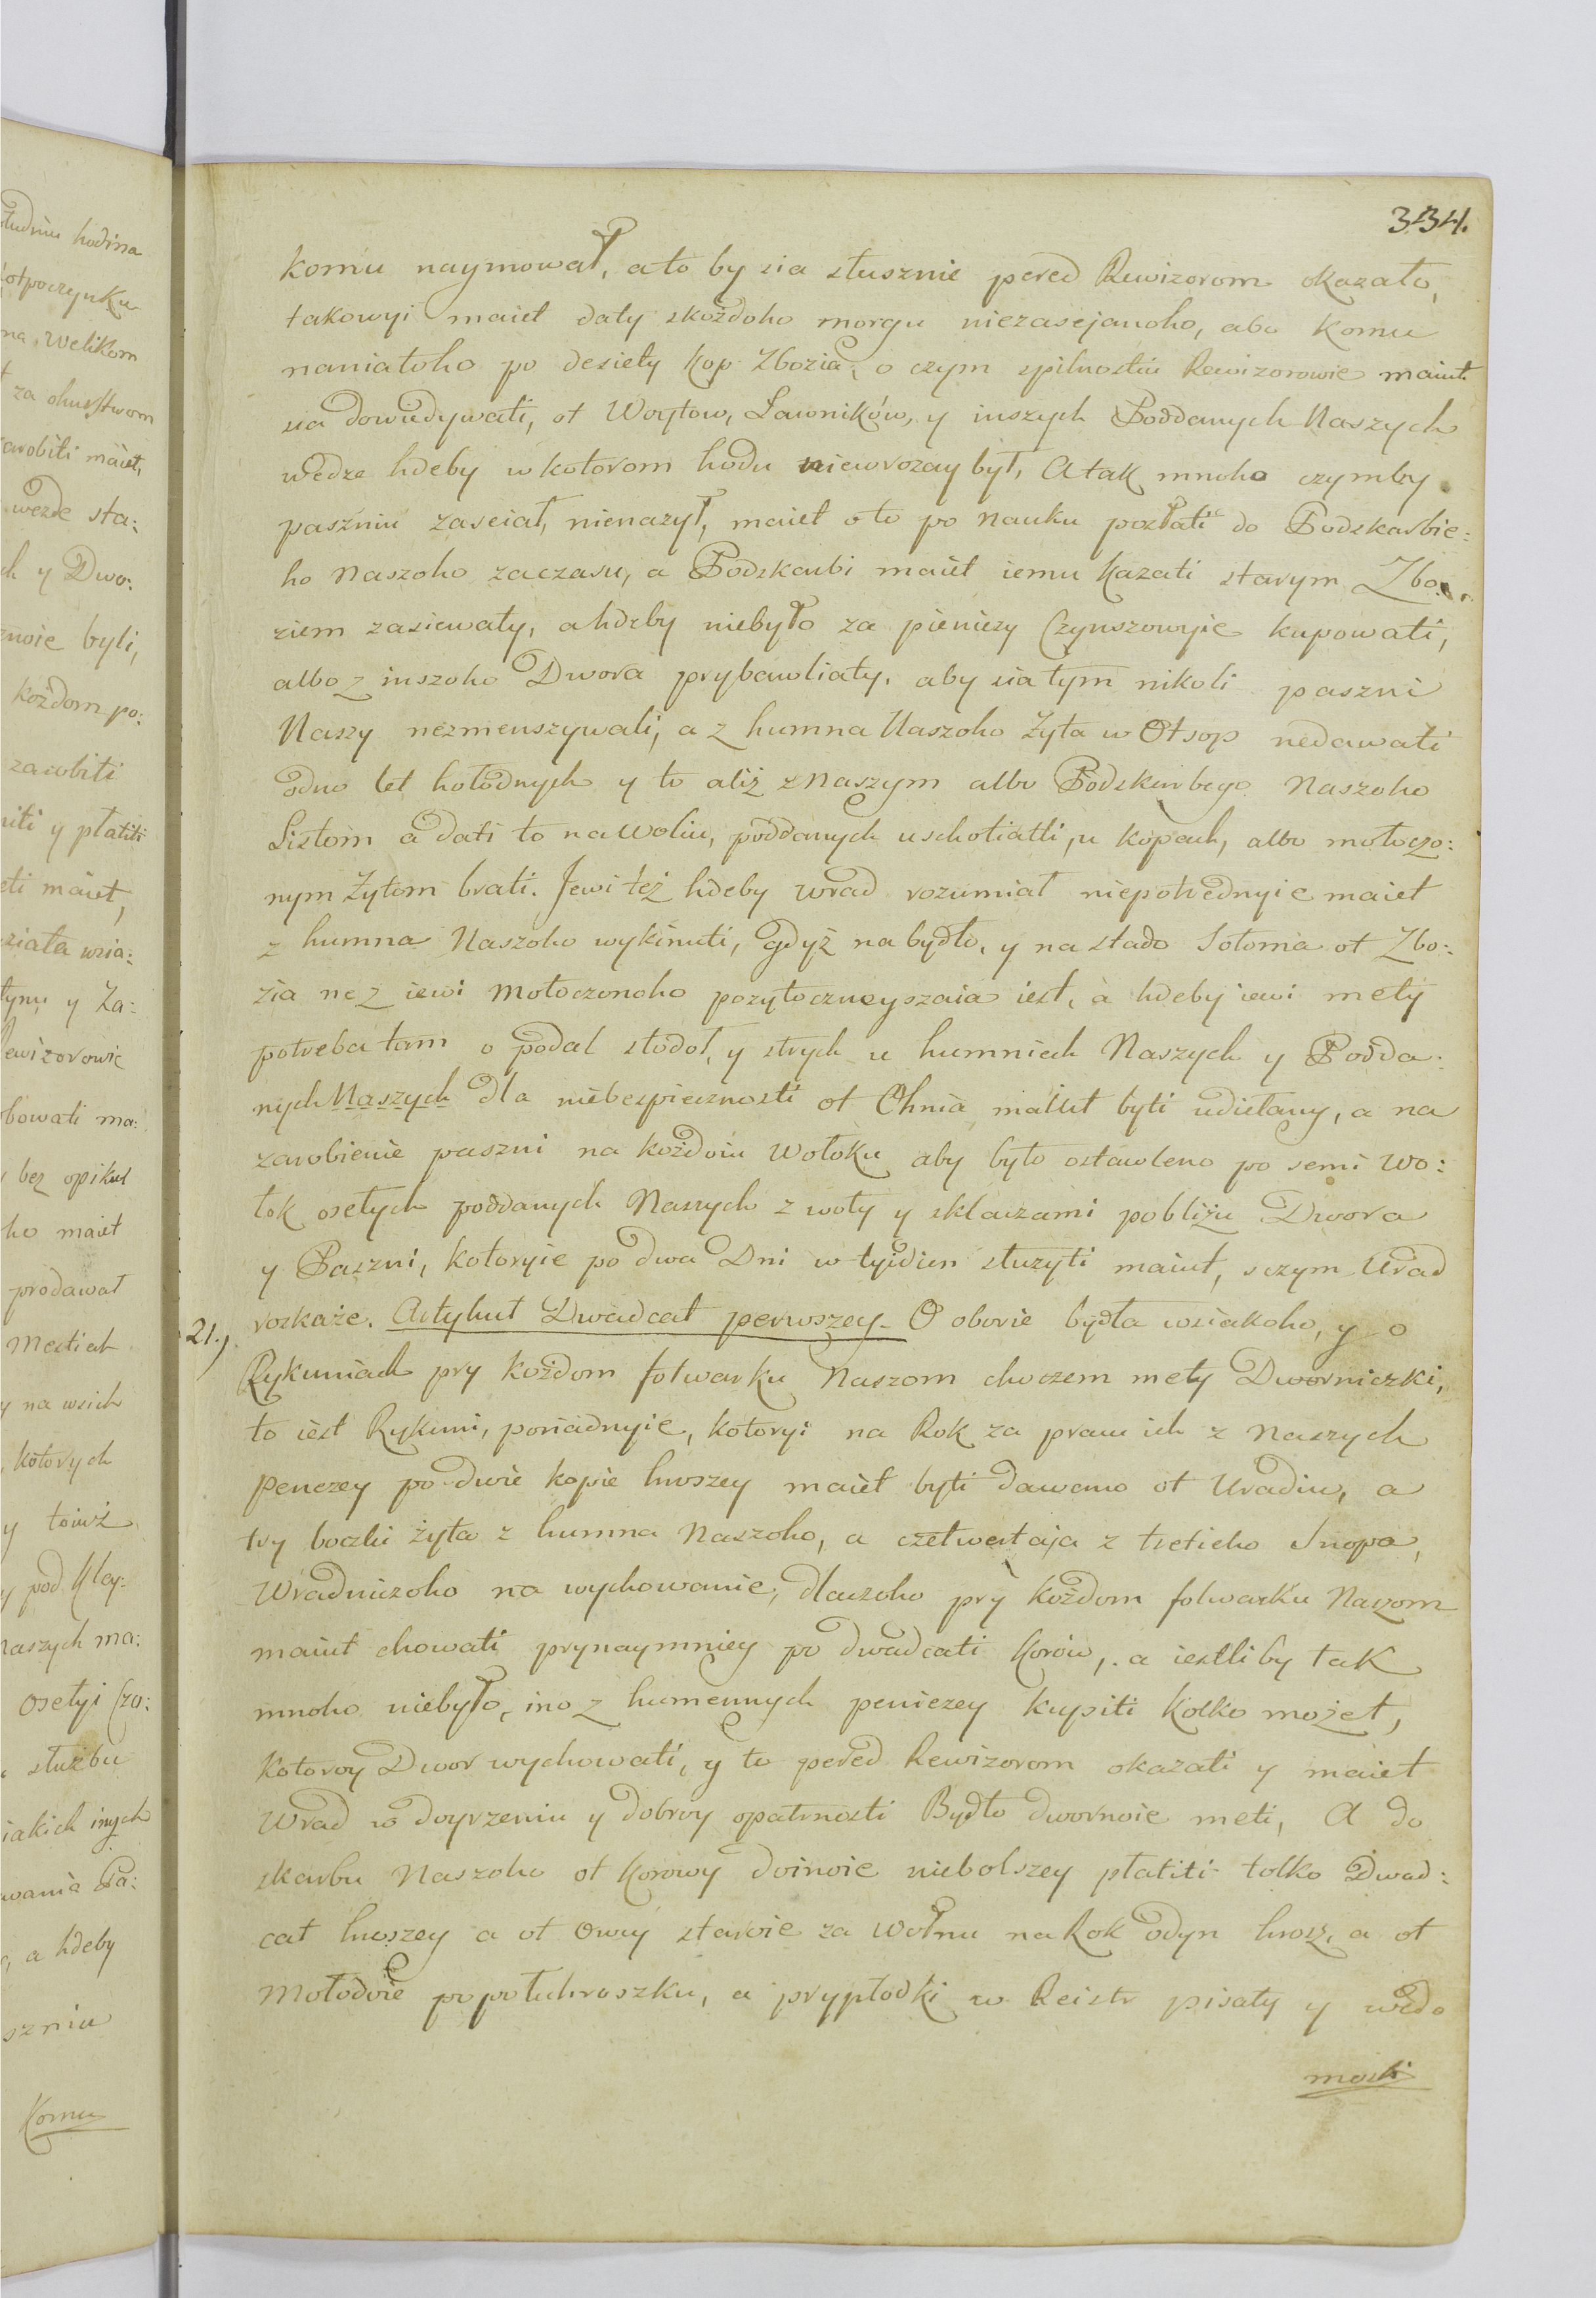 łudniu hodina
otpoczynku
na, Welikom
za ohurstwom
zarobiti maiet,
wezde sta:
ch y Dwo:
znoie byli,
kożdom po:
zarobiti
niti y płatiti
eti maiet,
ziata wzia:
tynu y Za:
Rewizorowie
bowati ma:
bez opiki
ho maiet
prodawał
Mestiech
y na wsich
kotorych
y toiuż
y pod Kley:
Naszych ma:
osetyi Czo:
służbu
iakich inych
wania Pa:
a hdeby
szniu
Komu
334.
komu naymował, ato by sia słusznie pered Rewizorom okazało,
takowyi maiet daty zkożdoho morgu niezasejanoho, abo komu
naniatoho po desiety kop Zbozia, o czym zpilnostiu Rewizorowie maiut
sia dowiedywati, ot Woytow, Ławników, y inszych Poddanych Naszych
wedze hdeby w kotorom hodu nieurozay był, A tak mnoho czymby
paszniu zaseiał, nienazył, maiet o to po nauku pozłati do Podskarbie:
ho Naszoho zaczasu, a Podskarbi maiet iemu kazati starym Zbo:
ziem zasiewaty, a hdzby niebyło za pieniezy Czynszowyie kupowati,
albo z inszoho Dwora prybawliaty, aby sia tym nikoli paszni
Naszy nezmenszywali, a z humna Naszoho Żyta w Otsop nedawati
odno let hołodnych y to aliż z Naszym albo Podskarbego Naszoho
Listom a dati to na woliu, poddanych uschotiatli, u kopach, albo mołoczo:
nym Żytom brati. Jewi też hdeby Wrad rozumiał niepotrednyie maiet
z humna Naszoho wykinuti, gdyż na bydło, y na stado Sołoma ot Zbo:
zia nez iewi Mołoczonoho pozytoczneyszaia iest, a hdeby iewi mety
potreba tam o podal stodoł, y strych u humniach Naszych y Podda:
nych Naszych dla niebezpiecznosti ot Ohnia maiut byti udiełany, a na
zarobienie paszni na kożdoiu Wołoku aby było ostawleno po semi Wo:
łok osetych poddanych Naszych z woły y sklaczami pobliżu Dwora
y Paszni, kotoryie po dwa Dni w tyidien służyti maiut, sczym Urad
roskaże. Artykuł Dwadcat perwszey. O oborie bydła wsiakoho, y o
21.)
Rykuniach pry kożdom folwarku Naszom choczem mety Dworniczki,
to iest Rykuni, poriadnyie, kotoryi na Rok za pracu ich z Naszych
Penezey po dwie kopie hroszey maiet byti dawano ot Uradiu, a
try boczki żyta z humna Naszoho, a czetwertaja z tretieho Snopa,
Wradniczoho na wychowanie, dlaczoho pry kożdom folwarku Naszom
maiut chowati prynaymniey po dwadcati korów, a iestliby tak
mnoho niebyło, ino z humennych peniezey kupiti kolko możet,
Kotoroy Dwor wychowati, y to pered Rewizorom okazati y maiet
Wrad w doyrzeniu y dobroy opatrnosti Bydło dwornoie meti, A do
skarbu Naszoho ot korowy doinoie niebolszey płatiti tolko Dwad:
cat hroszey a ot owcy staroie za Wołnu na Rok odyn hrosz, a ot
Mołodoie po połuhroszku, a prypłodki w Reistr pisaty y wedo
mosti